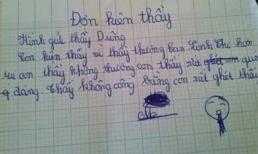 Đơn kiện thầy
Kính gửi thầy Dũng
Con kiện thầy vì thầy thương bạn Linh Chi hơn
con thầy không thương con thầy
đáng. Thầy không công bằng con rất ghét thầy